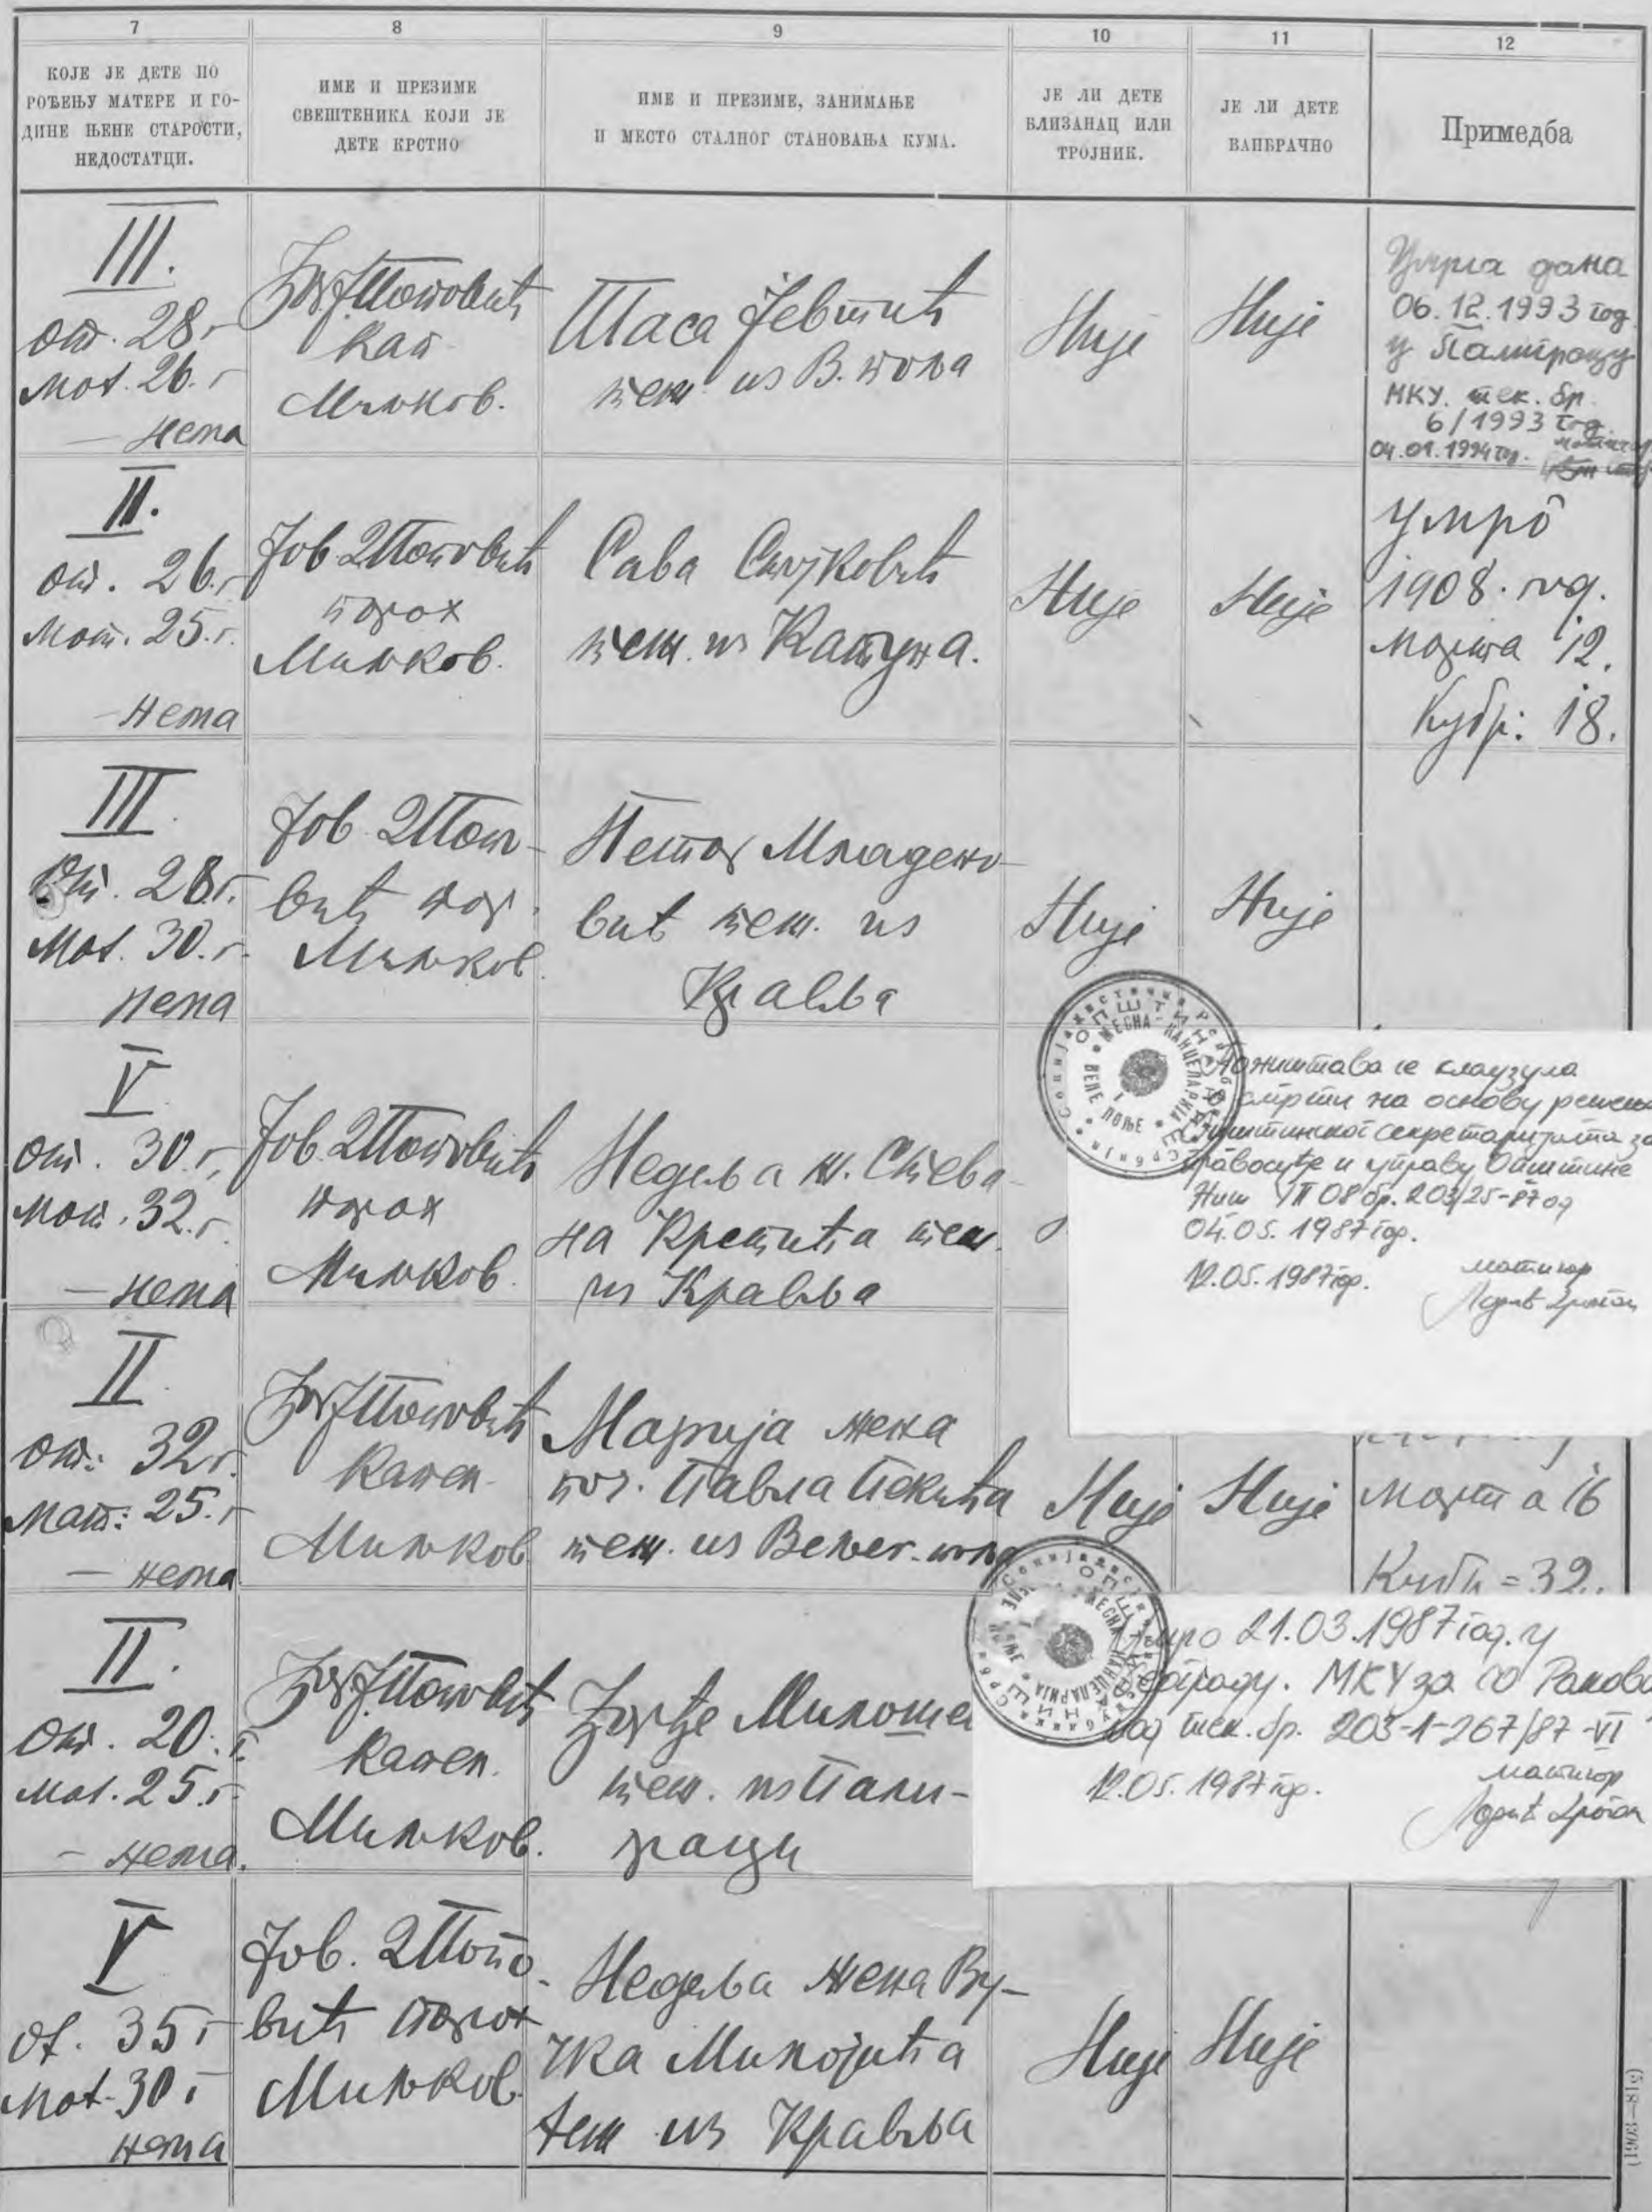 7
8
9
10
11
12
КОЈЕ ЈЕ ДЕТЕ ПО
РОЂЕЊУ МАТЕРЕ И ГО-
ДИНЕ ЊЕНЕ СТАРОСТИ,
НЕДОСТАТЦИ.
ИМЕ И ПРЕЗИМЕ
СВЕШТЕНИКА КОЈИ ЈЕ
ДЕТЕ КРСТИО
ИМЕ И ПРЕЗИМЕ, ЗАНИМАЊЕ
И МЕСТО СТАЛНОГ СТАНОВАЊА КУМА.
ЈЕ ЛИ ДЕТЕ
БЛИЗАНАЦ ИЛИ
ТРОЈНИК.
ЈЕ ЛИ ДЕТЕ
ВАНБРАЧНО
Примедба
III.
от. 28 г
мат. 26. г
— нема
Поповић
кап
Миљков.
Таса Јевтић
теж. из В. поља
Није
Није
Умрла дана
06.12.1993 год
у Палиграцу
МКУ. тек. бр.
6/1993 год.
04.01.1994 год. матичар
II.
от. 26. г
мат. 25. г.
— нема
Јов. Поповић
парох
Миљков.
Сава Стојковић
теж. из Катуна.
Није
Није
умро
1908. год.
марта 12.
Кубр: 18.
III
от. 28 г.
мат. 30. г.
нема
Јов. Попо-
вић пар.
Миљков.
Петар Младено-
вић теж. из
Кравља
Није
Није
V
от. 30 г,
мат. 32. г.
— нема
Јов. Поповић
парох
Миљков.
Недеља ж. Стева-
на Крстића теж.
из Кравља
Поништава се клаузула
смрти на основу решења
Општинског секретаријата за
правосуђе и управу Општине
Ниш VII 08 бр. 203/25-87 од
04.05.1987 год.
12.05.1987 год. матичар
II
от: 32 г.
мат: 25. г
— нема
Поповић
капел.
Миљков
Марија жена
поч. Павла Пекића
теж. из Велег. поља
Није
Није
марта 16
Кубр = 32.
II.
от. 20. г.
мат. 25. г
— нема.
Поповић
капел.
Миљков.
Ђорђе
теж. из Пали-
граци
Умро 21.03.1987 год. у
Београду. МКУ за СО
под тек. бр. 203-1-267/87-VI
12.05.1987 год. матичар
V
от. 35 г
мат. 30 г
нема
Јов. Попо-
вић парох
Миљков.
Недеља жена Ву-
чка Милојића
теж из Кравља
Није
Није